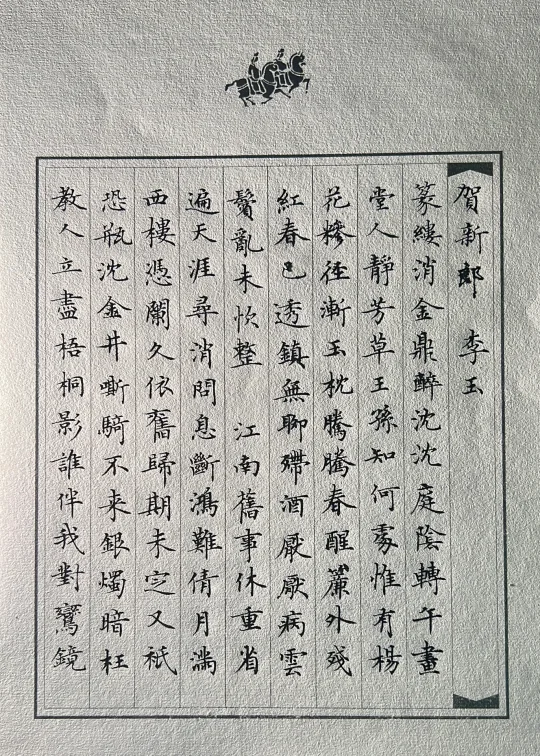 賀新郎　李玉
篆縷消金鼎醉沈沈庭陰轉午畫
堂人靜芳草王孫知何處惟有楊
花糝徑漸玉枕騰騰春醒簾外殘
紅春已透鎮無聊殢酒厭厭病雲
鬢亂未忺整　江南舊事休重省
遍天涯尋消問息斷鴻難倩月滿
西樓憑闌久依舊歸期未定又祇
恐瓶沈金井嘶騎不来銀燭暗枉
教人立盡梧桐影誰伴我對鸞鏡